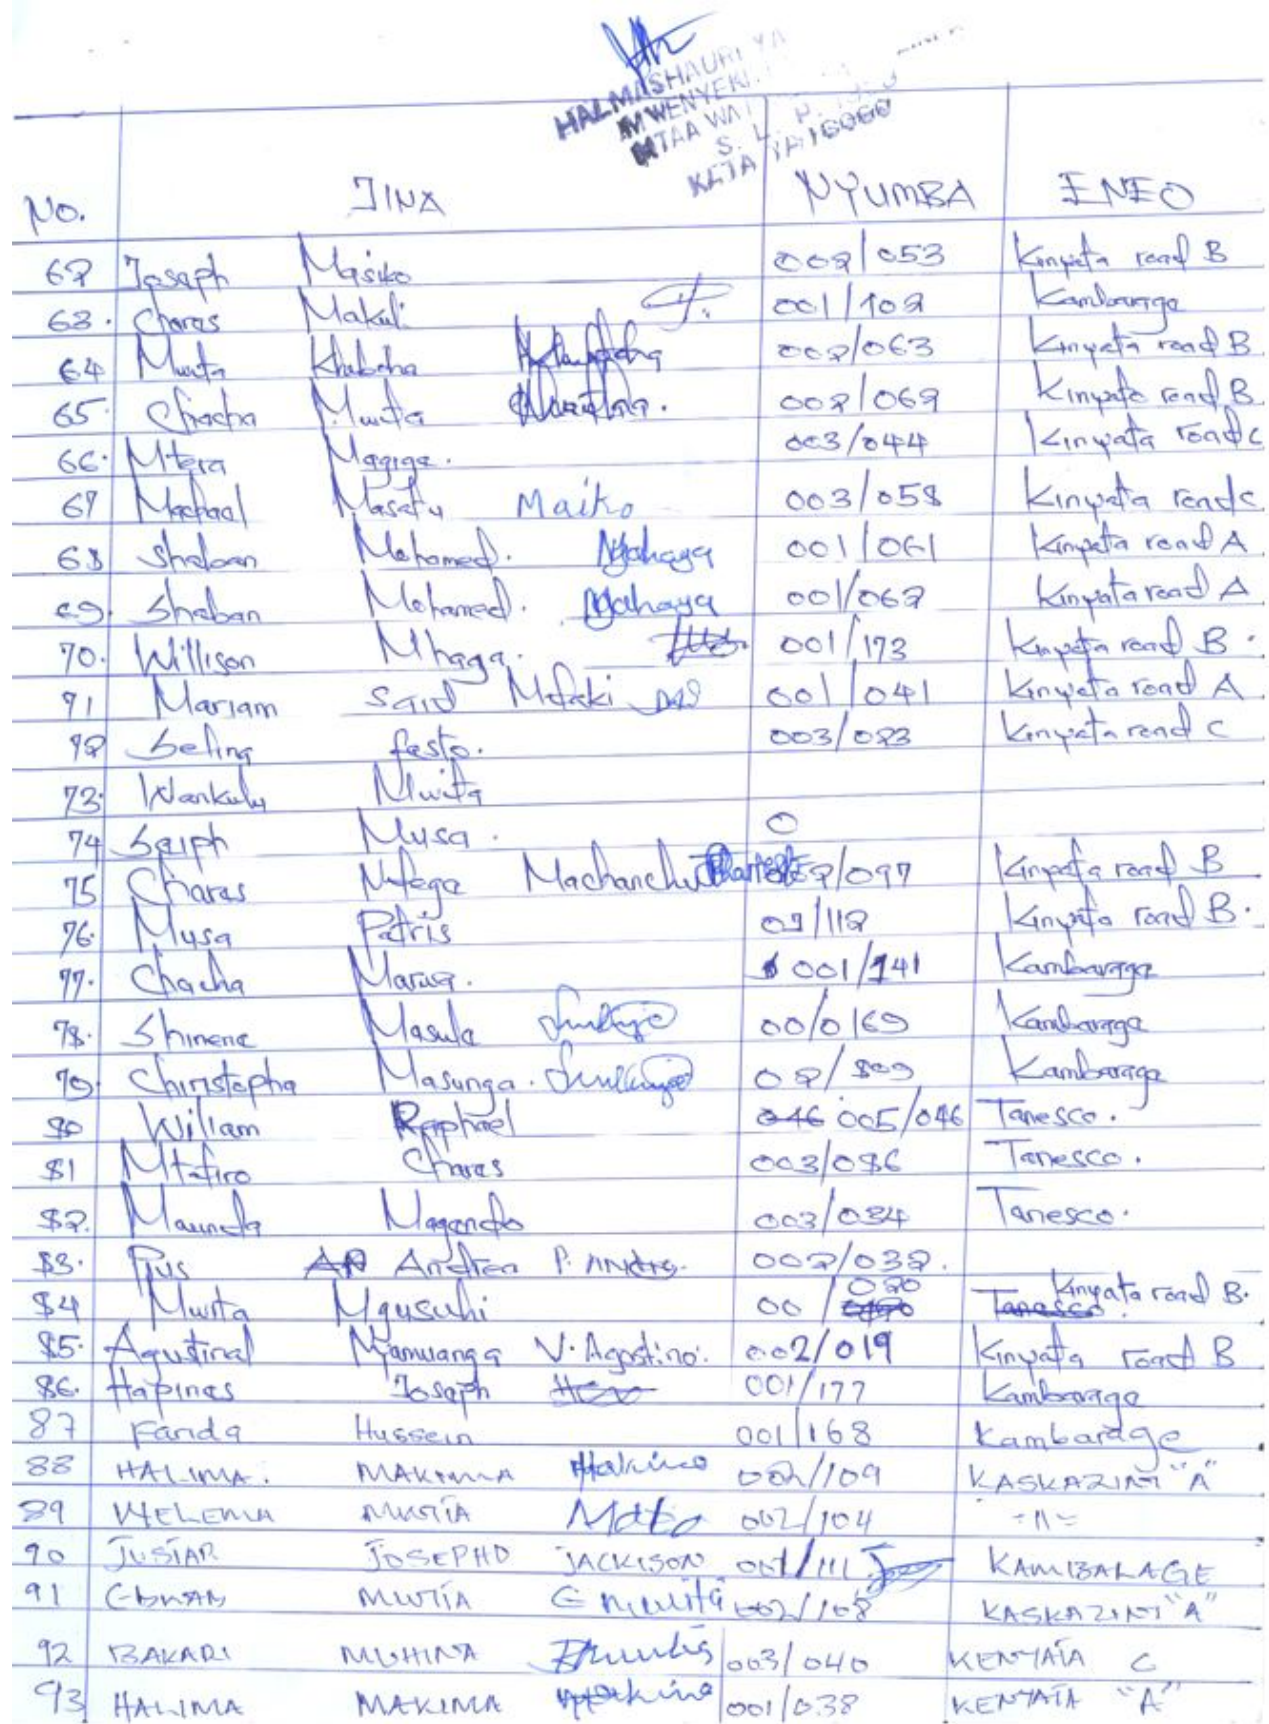 HALMASHAURI YA
MWENYEKI
MTAA WA
S. L. P.
No. JINA NYUMBA ENEO
62 Josaph Masiko 002/053 Kinyata road B
63. Chares Makuli 001/102 Kambarage
64 Mwita Khabcha 002/063 Kinyata road B
65 Chacha Mwita 002/062 Kinyata road B
66. Mtera Magige. 003/044 Kinyata road c
67 Machael Masatu Maiko 003/058 Kinyata road c
68 Shaban Mohamed. Mahaya 001/061 Kinyata road A
69. Shaban Mohamed. Mahaya 001/062 Kinyata road A
70. Willison Mhaga. 001/173 Kinyata road B.
71 Mariam Said Mofaki 001/041 Kinyata road A
72 Selina festo. 003/023 Kinyata road C
73. Wankulu Mwita
74 Saiph Musa. 0
75 Chares Ntega Machanchu /097 Kinyata road B
76. Musa Patris 02/112 Kinyata road B.
77. Chacha Marwa. 001/141 Kambarage
78. Shinene Masula 00/0169 Kambarage
79. Christopha Masunga. 02/809 Kambarage
80 Wiliam Raphael 046 005/046 Tanesco.
81 Mtatiro Chares 003/086 Tanesco.
82. Maunda Magando 003/034 Tanesco.
83. Pius Andrea P. Andrea. 002/032.
84 Mwita Mgusuhi 00/020 Tanesco. Kinyata road B.
85. Agustinal Nyamwanga V. Agostino. 002/019 Kinyata road B
86. Hapines Josaph 001/177 Kambarage
87 Farida Hussein 001/168 Kambarage
88 HALIMA. MAKIMA Makima 002/109 KASKAZINI "A"
89 WELEMA MWITA 002/104 =11=
90 JUSTAR JOSEPHD JACKISON 001/111 KAMBALAGE
91 EDWAD MWITA E mwita 002/108 KASKAZINI "A"
92 BAKARI MUHINA 003/040 KENYATA C
93 HALIMA MAKIMA Makima 001/038 KENYATA "A"